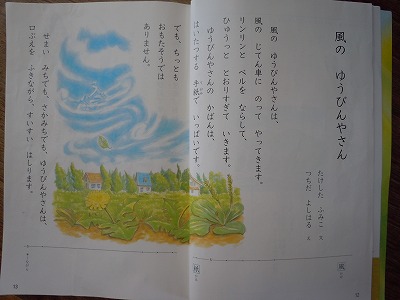 風の ゆうびんやさん
たけした ふみこ 文
つちだ よしはる え
風の ゆうびんやさんは、
風の じてん車に のって やってきます。
リンリンと ベルを ならして、
ひゅうっと とおりすぎて いきます。
ゆうびんやさんの かばんは、
はいたつする 手紙で いっぱいです。
でも、ちっとも
おもたそうでは
ありません。
せまい みちでも、さかみちでも、ゆうびんやさんは、
口ぶえを ふきながら、すいすい はしります。
風
紙
12
13